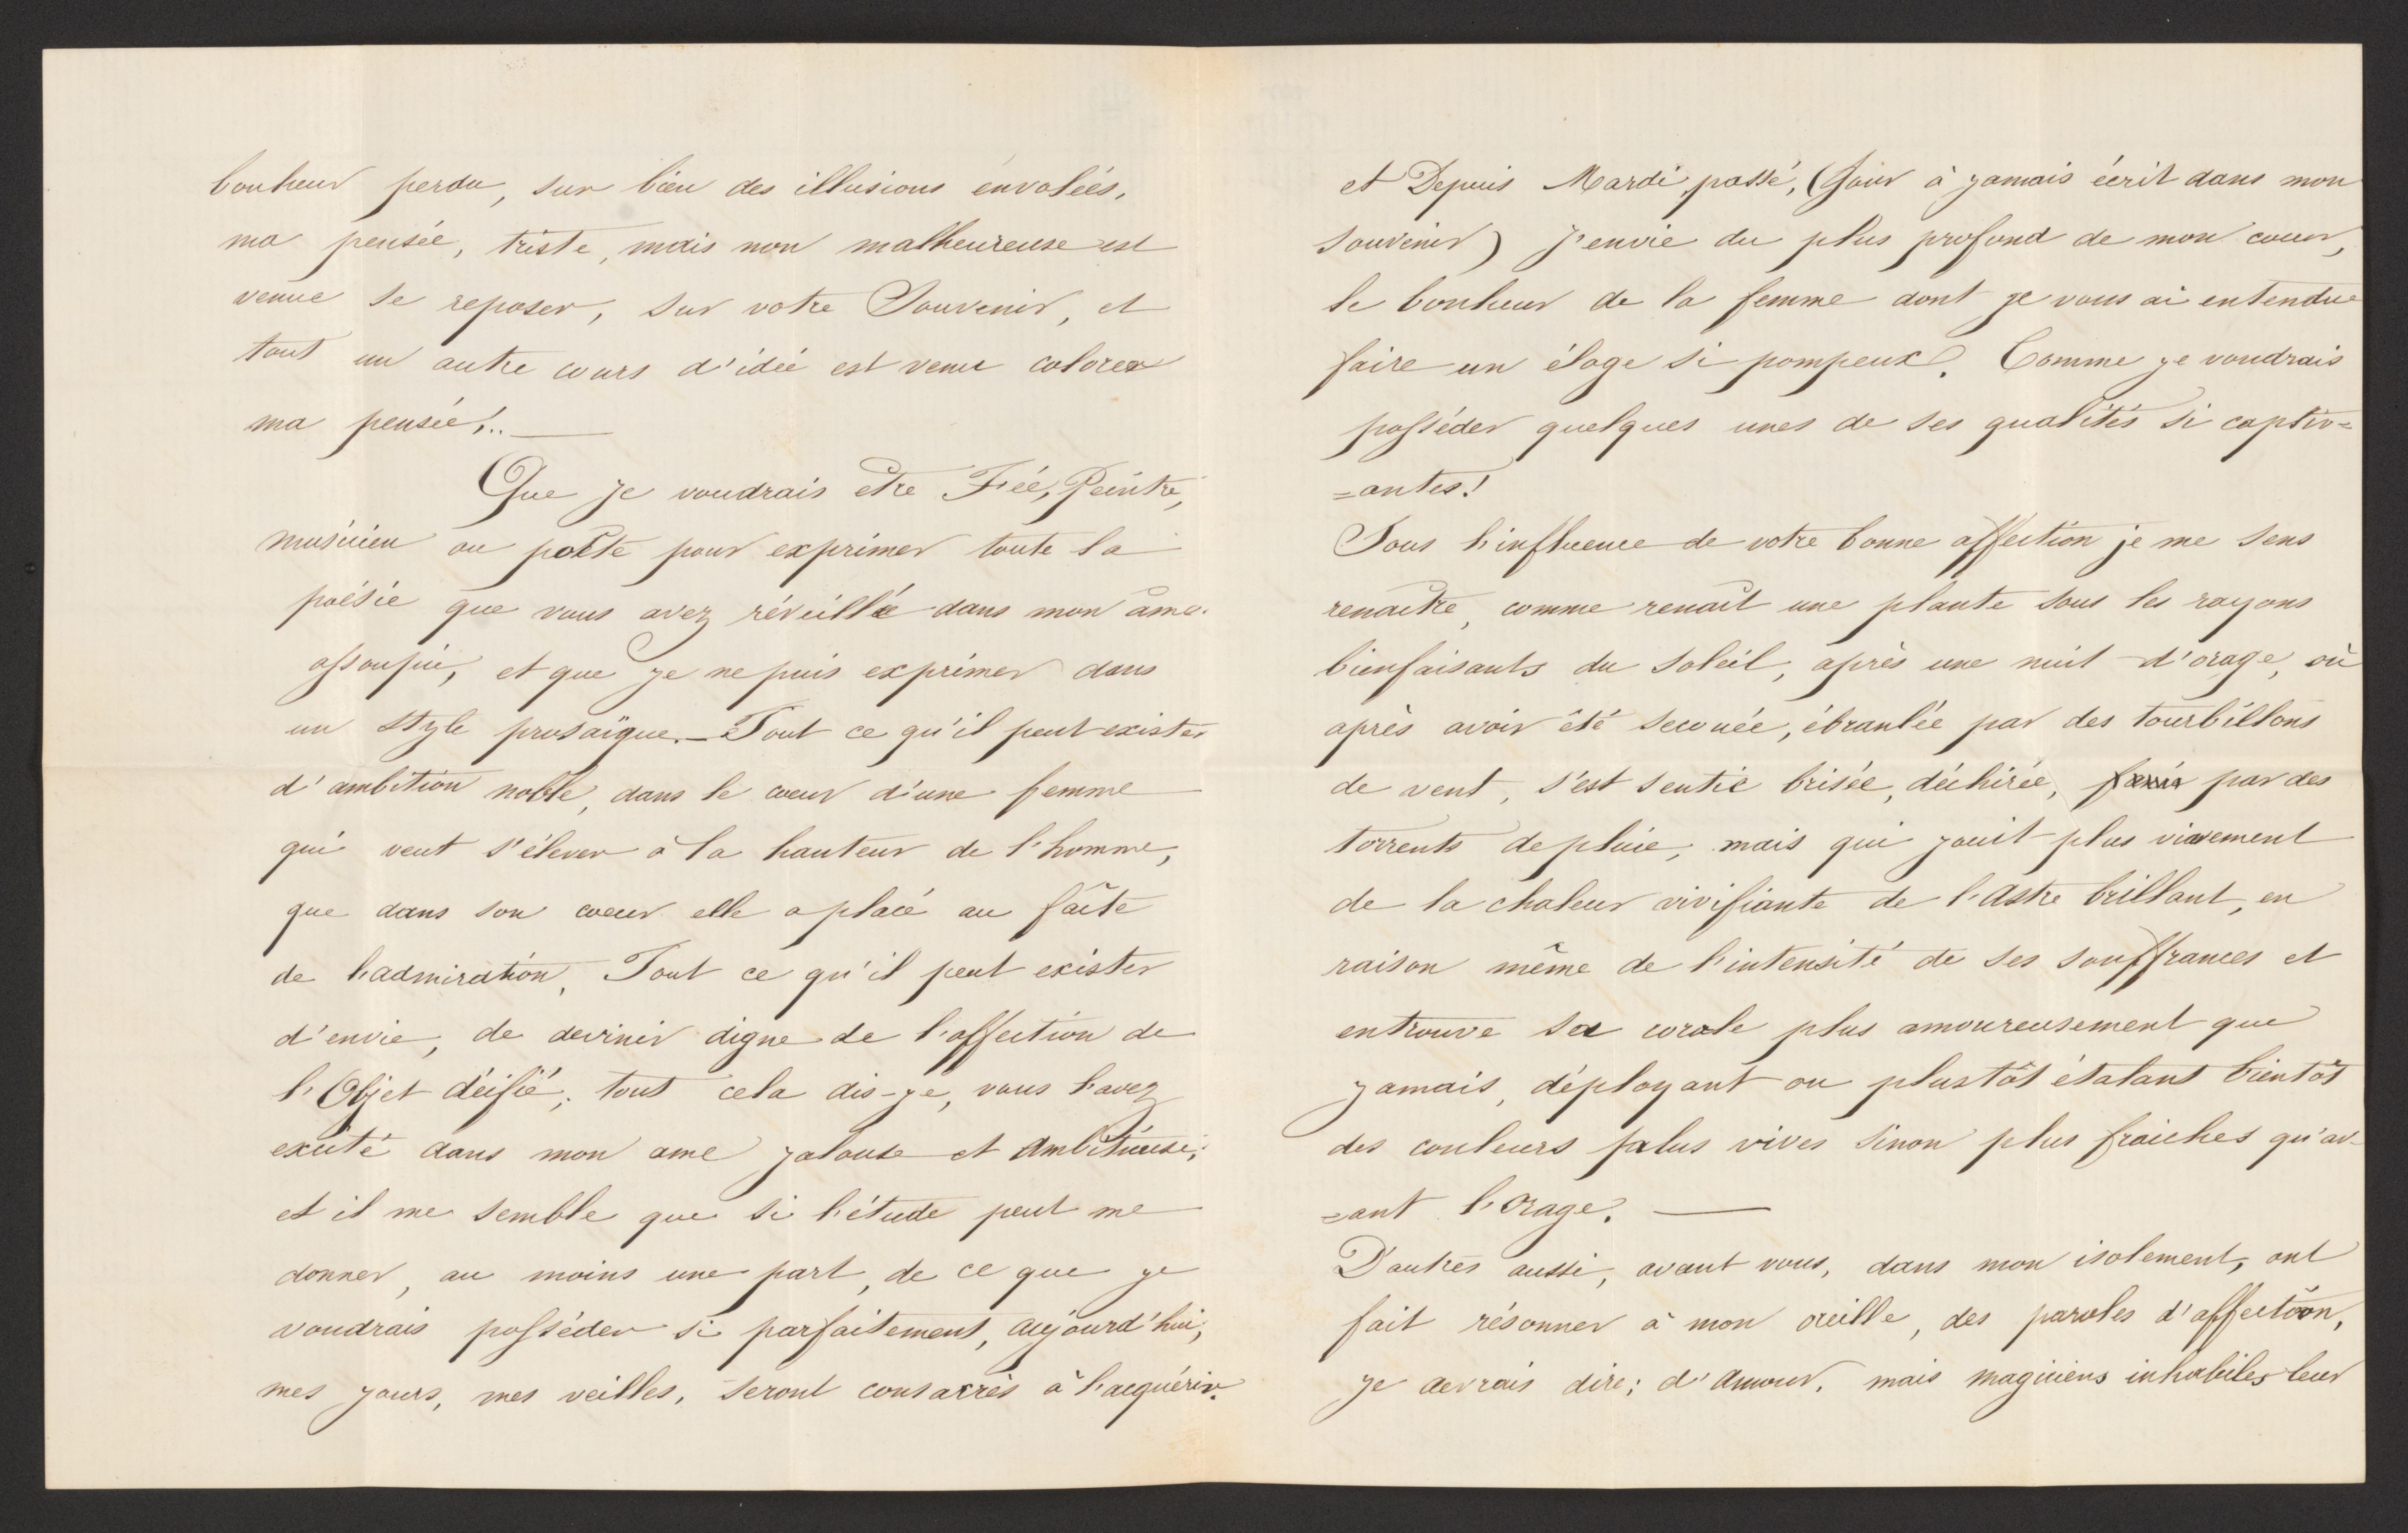 bonheur perdu, sur bien des illusions envolées,
ma pensée, triste, mais non malheureuse est
venue se reposer, sur votre Souvenir, et
tout un autre cours d'idée est venu colorer
ma pensée!..
Que je voudrais être Fée, Peintre,
musicien ou poëte pour exprimer toute la
poésie que vous avez réveillée dans mon âme
assoupie, et que je ne puis exprimer dans
un style prosaïque. — Tout ce qu'il peut exister
d'ambition noble, dans le coeur d'une femme
qui veut s'élever à la hauteur de l'homme,
que dans son coeur elle a placé au faîte
de l'admiration, Tout ce qu'il peut exister
d'envie, de devinir digne de l'affection de
l'Objet déifié; tout cela dis-je, vous l'avez
excité dans mon ame jalouse et Ambitieuse;
et il me semble que si l'étude peut me
donner, au moins une part, de ce que je
voudrais posséder si parfaitement, aujourd'hui,
mes jours, mes veilles, seront consacrés à l'acquérir.
et Depuis Mardi passé, (Jour à jamais écrit dans mon
souvenir) J'envie du plus profond de mon coeur,
le bonheur de la femme dont je vous ai entendue
faire un éloge si pompeux. Comme je voudrais
posséder quelques unes de ses qualités si captiv=
=antes!
Sous l'influence de votre bonne affection je me sens
renaître, comme renaît une plante sous les rayons
bienfaisants du soleil, après une nuit d'orage, où
après avoir été secouée, ébranlée par des tourbillons
de vent, s'est sentie brisée, déchirée, par des
torrents de pluie, mais qui jouit plus vivement
de la chaleur vivifiante de l'Astre brillant, en
raison même de l'intensité de ses souffrances et
entrouve sa corole plus amoureusement que
jamais, déployant ou plustôt étalant bientôt
des couleurs plus vives sinon plus fraiches qu'av-
=ant l'Orage. —
D'autres aussi, avant vous, dans mon isolement, ont
fait résonner à mon oreille, des paroles d'affection,
je devrais dire; d'Amour, mais magiciens inhabiles leur